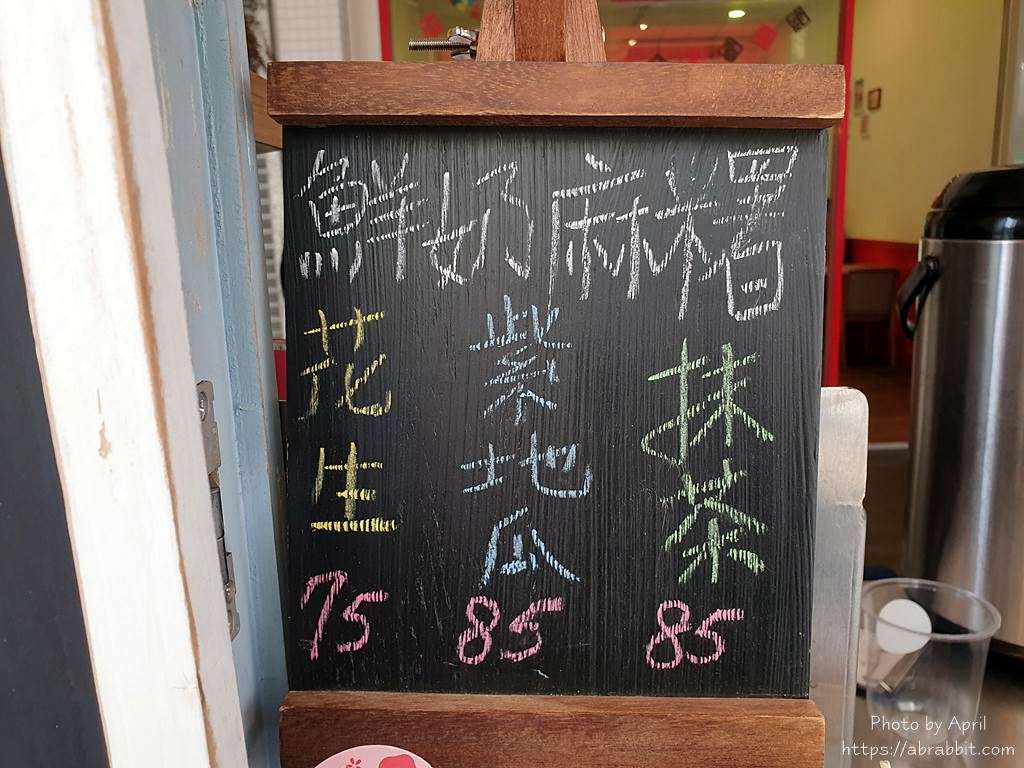 鮮奶麻糬
花生 75
紫地瓜 85
抹茶 85
Photo by April
https://abrabbit.com